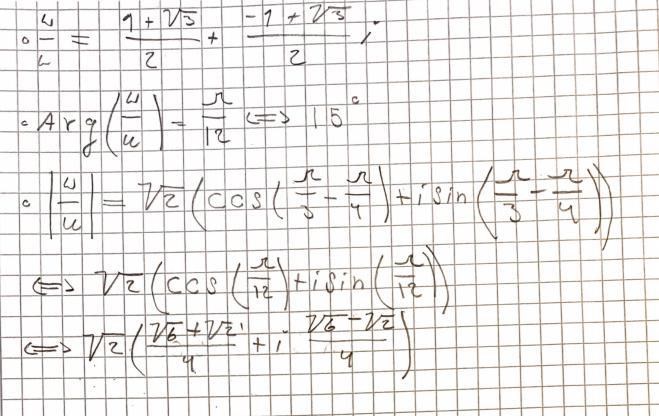 • w/u = (1+√3)/2 + (-1+√3)/2 i
• Arg(w/u) = π/12 ⟺ 15°
• |w/u| = √2(cos(π/3 - π/4) + i sin(π/3 - π/4))
⟺ √2(cos(π/12) + i sin(π/12))
⟺ √2((√6+√2)/4 + i (√6-√2)/4)